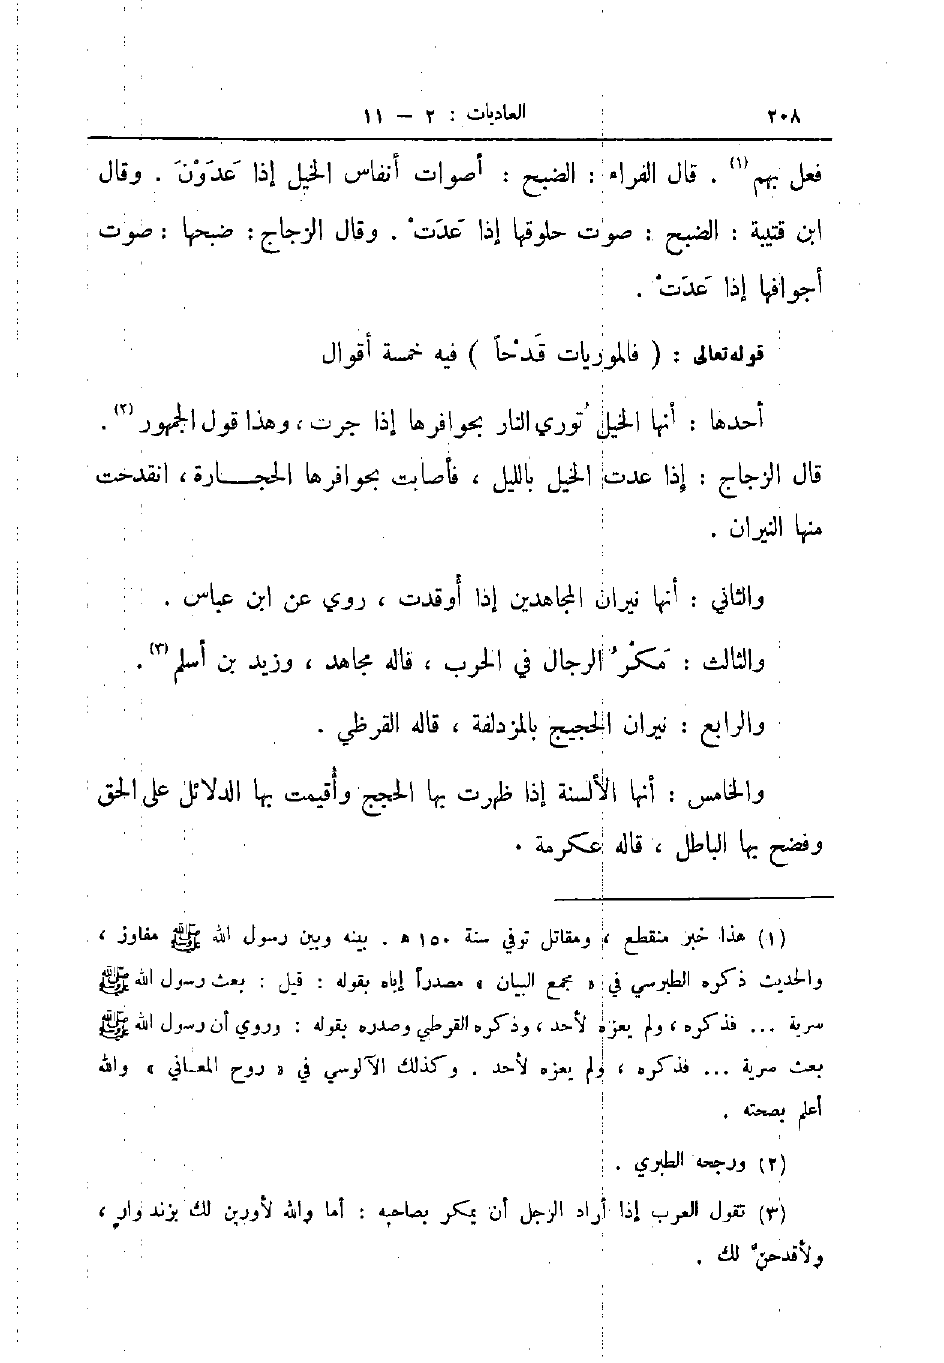 ٢٠٨ العاديات : ٢ – ١١
فعل بهم (١) . قال الفراء : الضبح : أصوات أنفاس الخيل إذا عَدَوْنَ . وقال
ابن قتيبة : الضبح : صوت حلوقها إذا عَدَتْ . وقال الزجاج : ضبحها : صوت
أجوافها إذا عَدَتْ .
قوله تعالى : ( فالموريات قَدْحاً ) فيه خمسة أقوال
أحدها : أنها الخيل تُوري النار بحوافرها إذا جرت ، وهذا قول الجمهور (٢) .
قال الزجاج : إذا عدت الخيل بالليل ، فأصابت بحوافرها الحجـــارة ، انقدحت
منها النيران .
والثاني : أنها نيران المجاهدين إذا أُوقدت ، روي عن ابن عباس .
والثالث : مَكْرُ الرجال في الحرب ، قاله مجاهد ، وزيد بن أسلم (٣) .
والرابع : نيران الحجيج بالمزدلفة ، قاله القرظي .
والخامس : أنها الألسنة إذا ظهرت بها الحجج وأُقيمت بها الدلائل على الحق
وفضح بها الباطل ، قاله عكرمة .
(١) هذا خبر منقطع ، ومقاتل توفي سنة ١٥٠ هـ . بينه وبين رسول الله ﷺ مفاوز ،
والحديث ذكره الطبرسي في « مجمع البيان » مصدراً إياه بقوله : قيل : بعث رسول الله ﷺ
سرية ... فذكره ، ولم يعزه لأحد ، وذكره القرطبي وصدره بقوله : وروي أن رسول الله ﷺ
بعث سرية ... فذكره ، ولم يعزه لأحد . وكذلك الآلوسي في « روح المعـاني » والله
أعلم بصحته .
(٢) ورجحه الطبري .
(٣) تقول العرب إذا أراد الرجل أن يمكر بصاحبه : أما والله لأورين لك بزند وارٍ ،
ولأقدحنَّ لك .